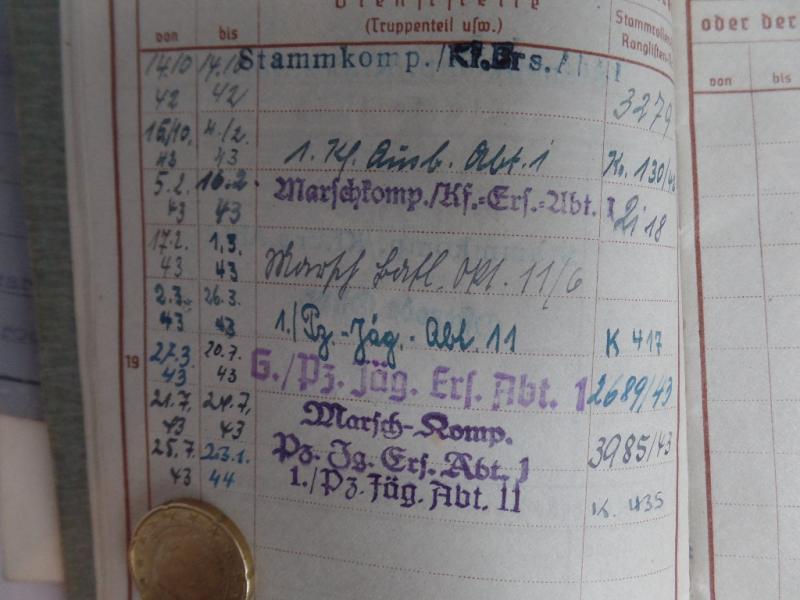 Dienststelle
(Truppenteil usw.)
von bis
Stammrollen
Ranglisten
oder der
von bis
14.10 14.10 Stammkomp./Kf.Ers.Abt.1
42 42 3279
15/10. 4./2.
42 43 1. Kf. Ausb. Abt. 1 K. 130/42
5.2. 16.2. Marschkomp./Kf.=Ers.=Abt. 1 2i 18
43 43
17.2. 1.3.
43 43 Marsch Batl. 11/6
2.3. 26.3.
43 43 1./Pz.-Jäg.-Abt. 11 K 417
19 27.3. 20.7. G./Pz. Jäg. Ers. Abt. 1 2689/43
43 43
21.7. 24.7. Marsch-Komp.
43 43 Pz. Jg. Ers. Abt. 1 3985/43
25.7. 23.1. 1./Pz. Jäg. Abt. 11 K. 435
43 44